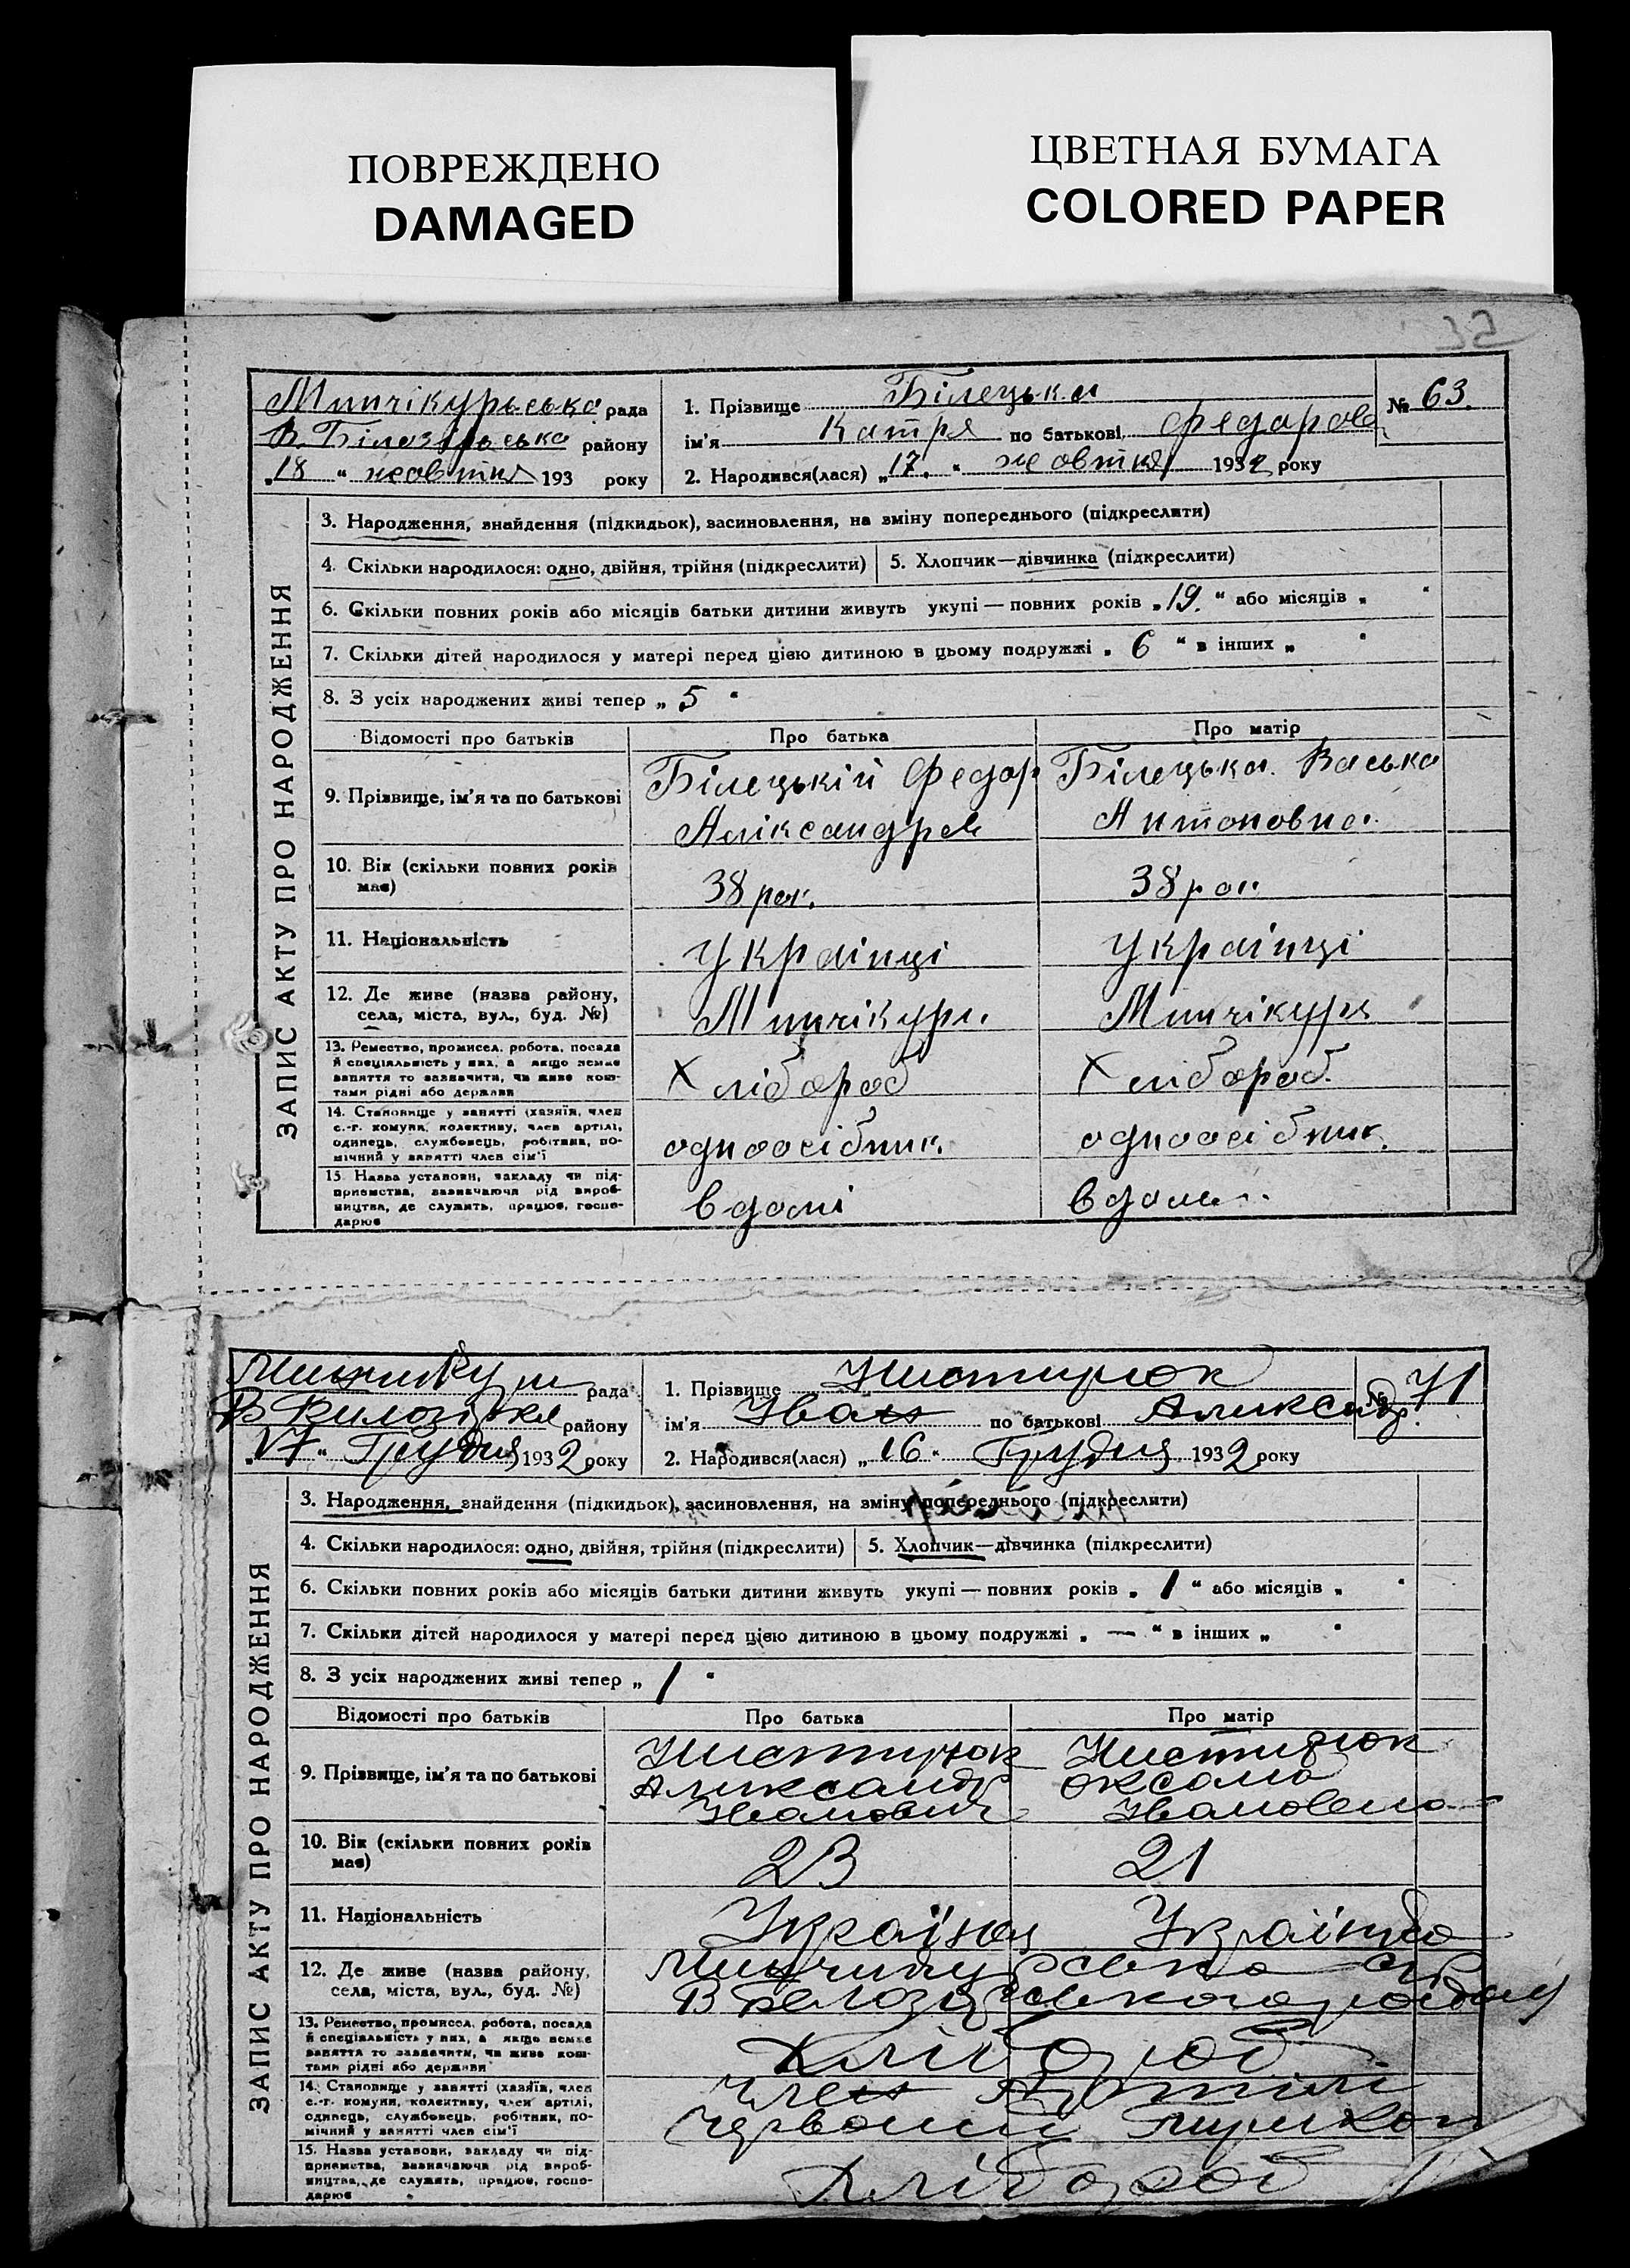 ПОВРЕЖДЕНО
DAMAGED
ЦВЕТНАЯ БУМАГА
COLORED PAPER
32
Минчікурьська рада
В. Білозірьська району
"18" жовтня 193 року
1. Прізвище Білецька
ім'я Катря по батькові Федорова
2. Народився(лася) "17." жовтня 1932 року
№ 63.
ЗАПИС АКТУ ПРО НАРОДЖЕННЯ
3. Народження, знайдення (підкидьок), засиновлення, на зміну попереднього (підкреслити)
4. Скільки народилося: одно, двійня, трійня (підкреслити) 5. Хлопчик—дівчинка (підкреслити)
6. Скільки повних років або місяців батьки дитини живуть укупі — повних років "19." або місяців " "
7. Скільки дітей народилося у матері перед цією дитиною в цьому подружжі "6" в інших " "
8. З усіх народжених живі тепер "5"
Відомості про батьків Про батька Про матір
9. Прізвище, ім'я та по батькові
Білецькій Федор
Аліксандров
Білецька Васька
Антоновна.
10. Вік (скільки повних років має)
38 рок. 38 рок
11. Національність
Українці Українці
12. Де живе (назва району, села, міста, вул., буд. №)
Минчікури. Минчікуря
13. Ремество, промисел, робота, посада
й спеціяльність у них, а якщо немає
заняття то зазначити, чи живе кош-
тами рідні або держави
Хлібороб Хлібороб.
14. Становище у занятті (хазяїн, член
с.-г. комуни, колективу, член артілі,
одинець, службовець, робітник, по-
мічний у занятті член сім'ї
одноосібник. одноосібник.
15 Назва установи, закладу чи під-
приємства, зазначаючи рід вироб-
ництва, де служить, працює, госпо-
дарює
вдомі вдоми.
рада
району
"17" Грудня 1932 року
1. Прізвище
ім'я Іван по батькові Александр.
2. Народився(лася) "16" Грудня 1932 року
№ 71
ЗАПИС АКТУ ПРО НАРОДЖЕННЯ
3. Народження, знайдення (підкидьок), засиновлення, на зміну попереднього (підкреслити)
4. Скільки народилося: одно, двійня, трійня (підкреслити) 5. Хлопчик—дівчинка (підкреслити)
6. Скільки повних років або місяців батьки дитини живуть укупі — повних років "1" або місяців " "
7. Скільки дітей народилося у матері перед цією дитиною в цьому подружжі "—" в інших " "
8. З усіх народжених живі тепер "1"
Відомості про батьків Про батька Про матір
9. Прізвище, ім'я та по батькові
Александр
Іванович
Оксана
Івановена
10. Вік (скільки повних років має)
23 21
11. Національність
Українця Українка
12. Де живе (назва району, села, міста, вул., буд. №)
13. Ремество, промисел, робота, посада
й спеціяльність у них, а якщо немає
заняття то зазначити, чи живе кош-
тами рідні або держави
Хлібороб
14. Становище у занятті (хазяїн, член
с.-г. комуни, колективу, член артілі,
одинець, службовець, робітник, по-
мічний у занятті член сім'ї
член Артілі
Червоний Пирикоп
15. Назва установи, закладу чи під-
приємства, зазначаючи рід вироб-
ництва, де служить, працює, госпо-
дарює
Хлібороб